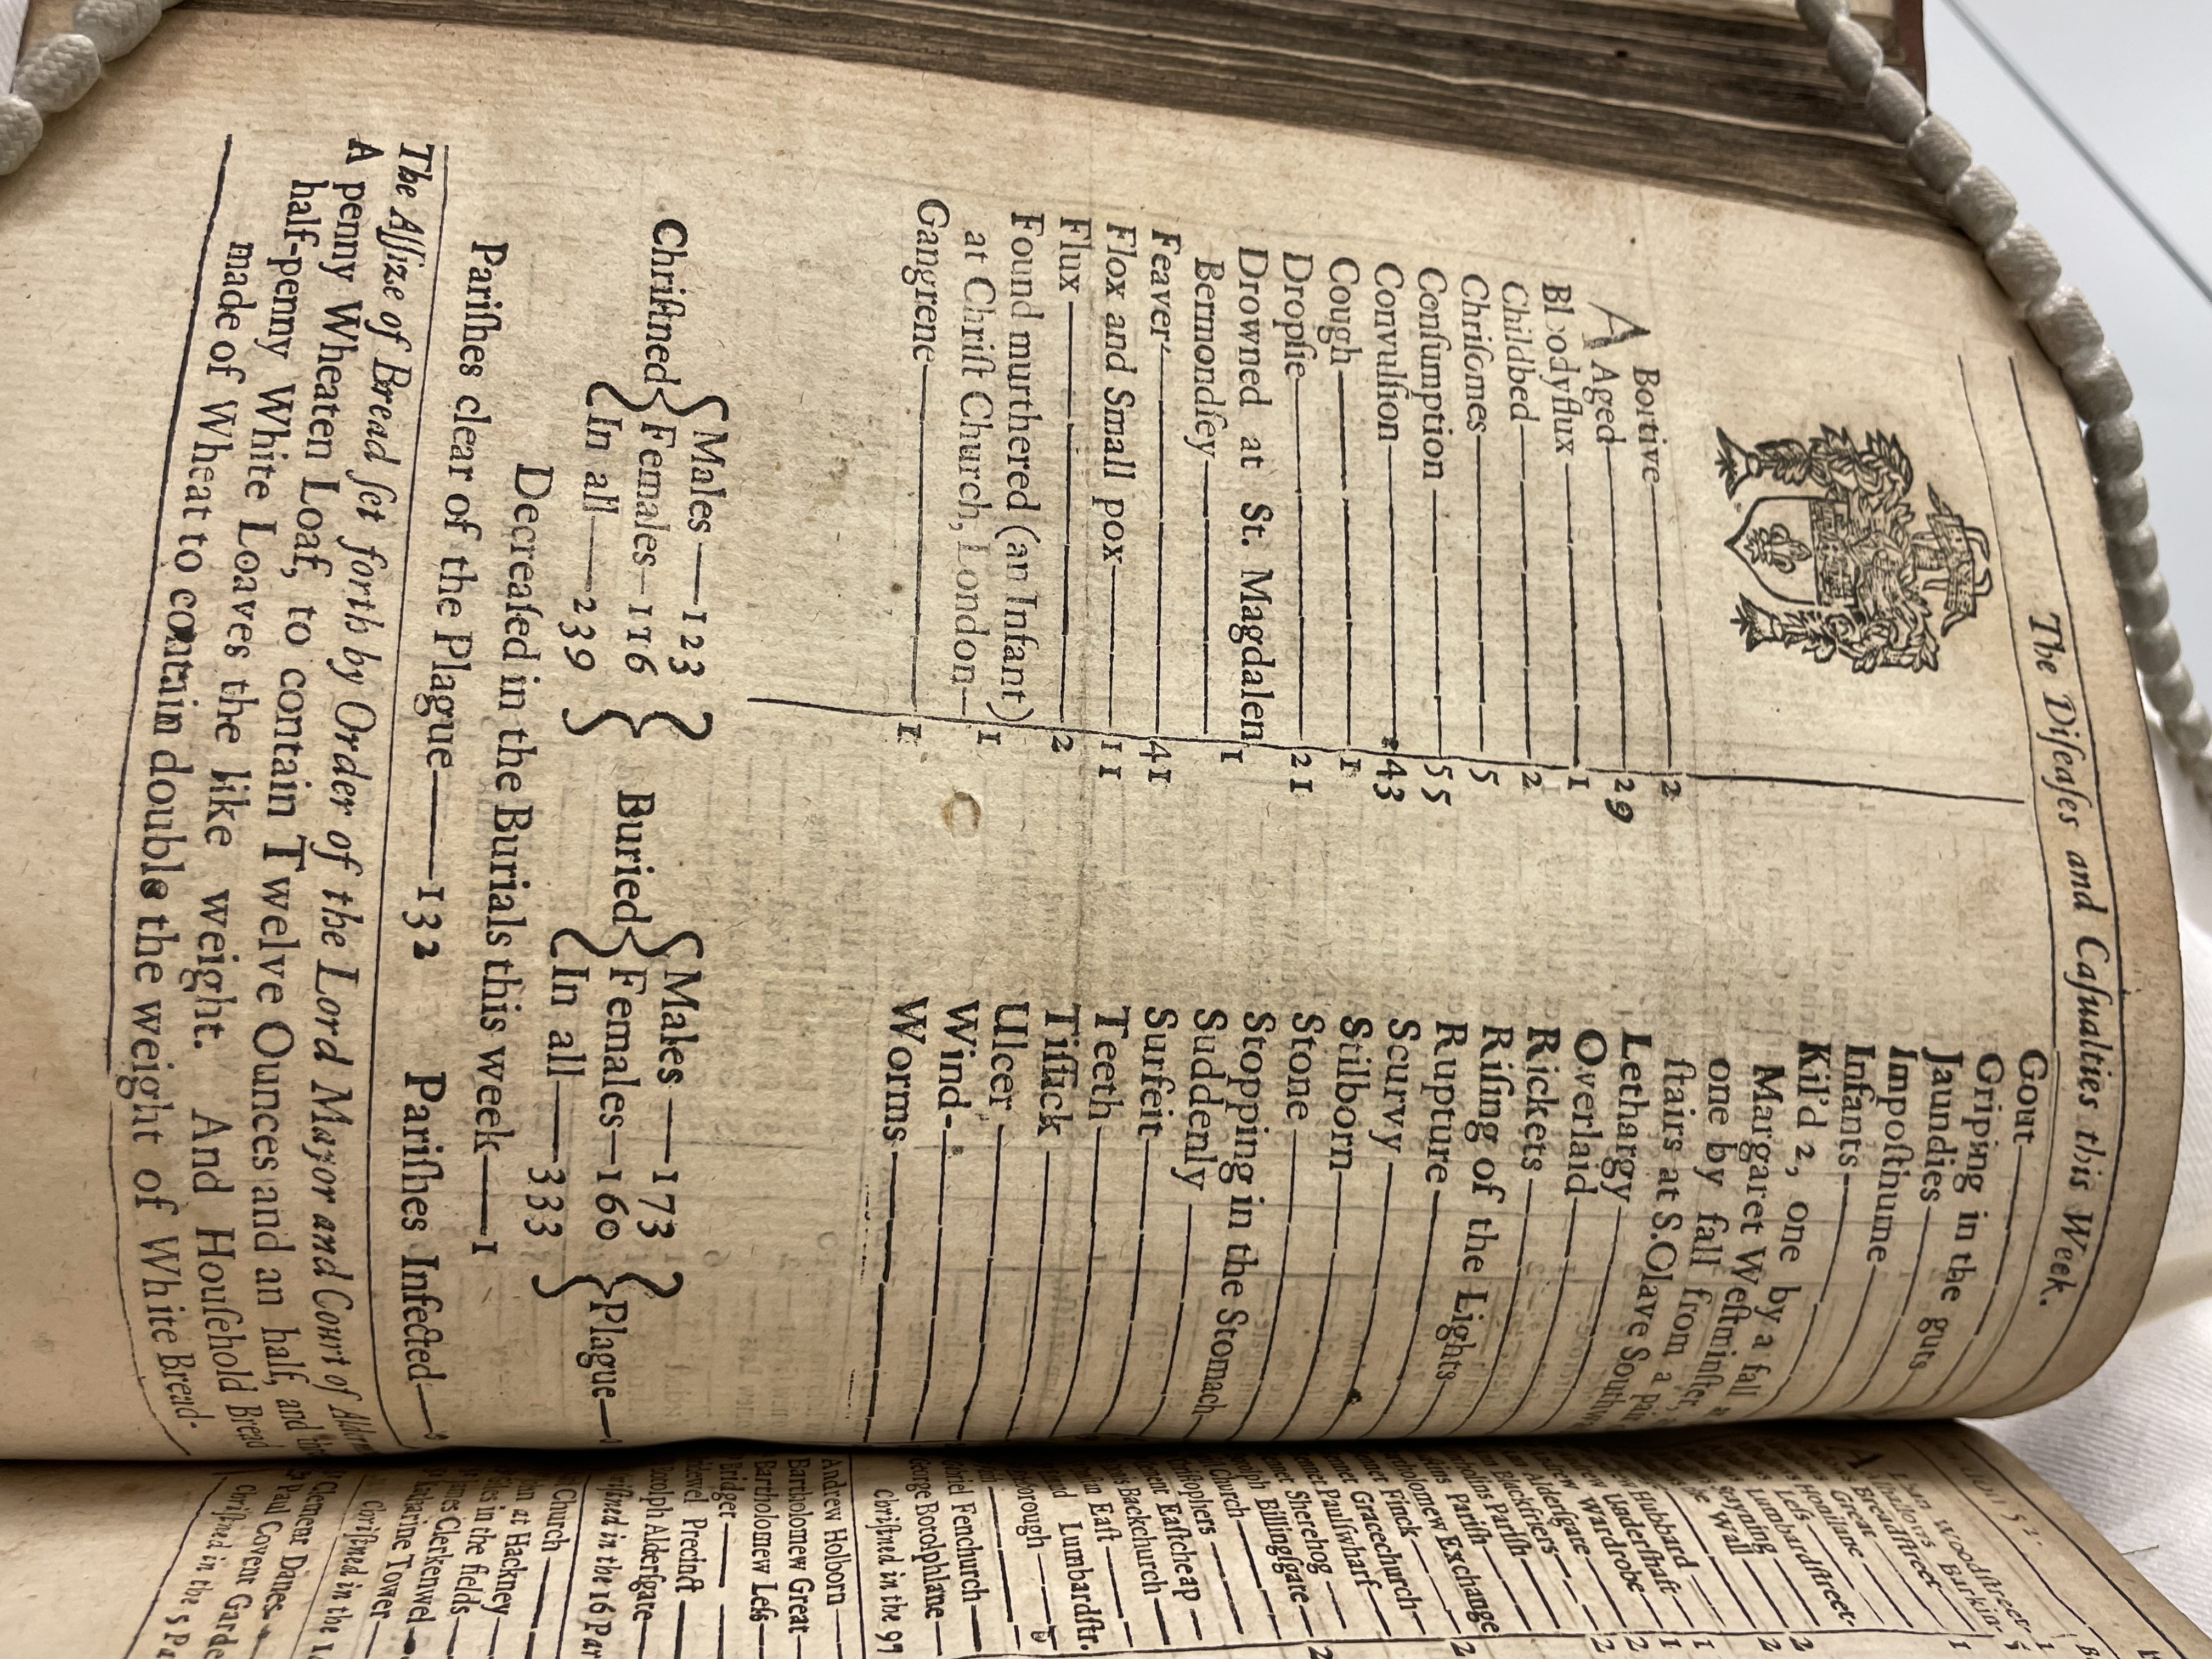 The Diſeaſes and Caſualties this Week.
ABortive 2
Aged 29
Bloodyflux 1
Childbed 2
Chriſomes 5
Conſumption 55
Convulſion 43
Cough 1
Dropſie 21
Drowned at St. Magdalen
Bermondſey 1
Feaver 41
Flox and Small pox 11
Flux 2
Found murthered (an Infant)
at Chriſt Church, London 1
Gangrene 1
Gout
Griping in the guts
Jaundies
Impoſthume
Infants
Kil'd 2, one by a fall
Margaret Weſtminſter,
one by fall from a pair
ſtairs at S.Olave
Lethargy
Overlaid
Rickets
Riſing of the Lights
Rupture
Scurvy
Stilborn
Stone
Stopping in the Stomach
Suddenly
Surfeit
Teeth
Tiſſick
Ulcer
Wind
Worms
Chriſtned { Males—123 Females—116 In all—239 } Buried { Males—173 Females—160 In all—333 } Plague—
Decreaſed in the Burials this week—1
Pariſhes clear of the Plague—132 Pariſhes Infected—
The Aſſize of Bread ſet forth by Order of the Lord Mayor and Court of
A penny Wheaten Loaf, to contain Twelve Ounces and an half, and
half-penny White Loaves the like weight. And Houſehold Bread
made of Wheat to contain double the weight of White Bread.
Woodſtreet
Barkin
Breadſtreet 1
Great
Honilane
Leſs
Lumbardſtreet
Wall
Hubbard 1
Underſhaft 1
Wardrobe 2
Alderſgate 2
Blackfriers
Pariſh
Exchange 2
Finck
Gracechurch
Paulſwharf
Sherehog
Billingſgate 2
Church
Eaſtcheap
Backchurch
Eaſt
Lumbardſtr.
Fenchurch
George Botolphlane
Chriſtned in the 97
Andrew Holborn
Bartholomew Great
Bartholomew Leſs
Bridget
Bridewel Precinct
Botolph Alderſgate
Chriſtned in the 16 Par
Church
at Hackney
in the fields
James Clerkenwel
Katharine Tower
Chriſtned in the
Clement Danes
Paul Covent Garde
Chriſtned in the 5 Pa